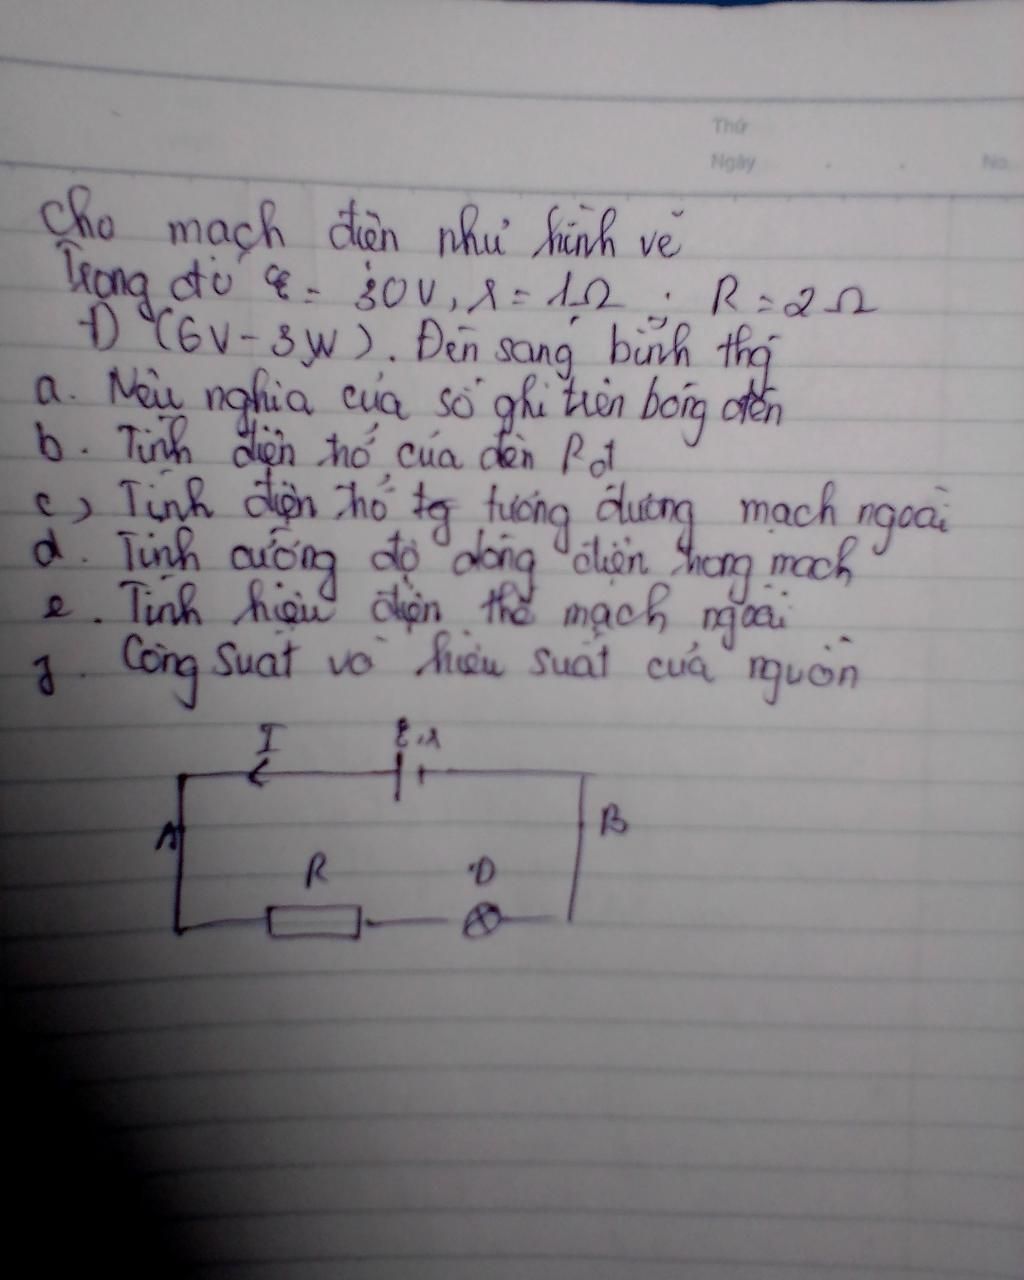 Thứ
Ngày . . No.
Cho mạch điện như hình vẽ
Trong đó ℰ = 30V, r = 1Ω ; R = 2Ω
Đ (6V - 3W). Đèn sáng bình thg
a. Nêu nghĩa của số ghi trên bóng đèn
b. Tính điện trở của đèn Rđ
c) Tính điện trở tg tương đương mạch ngoài
d. Tính cường độ dòng điện trong mạch
e. Tính hiệu điện thế mạch ngoài
g. Công suất và hiệu suất của nguồn
I ℰ,r
A B
R Đ